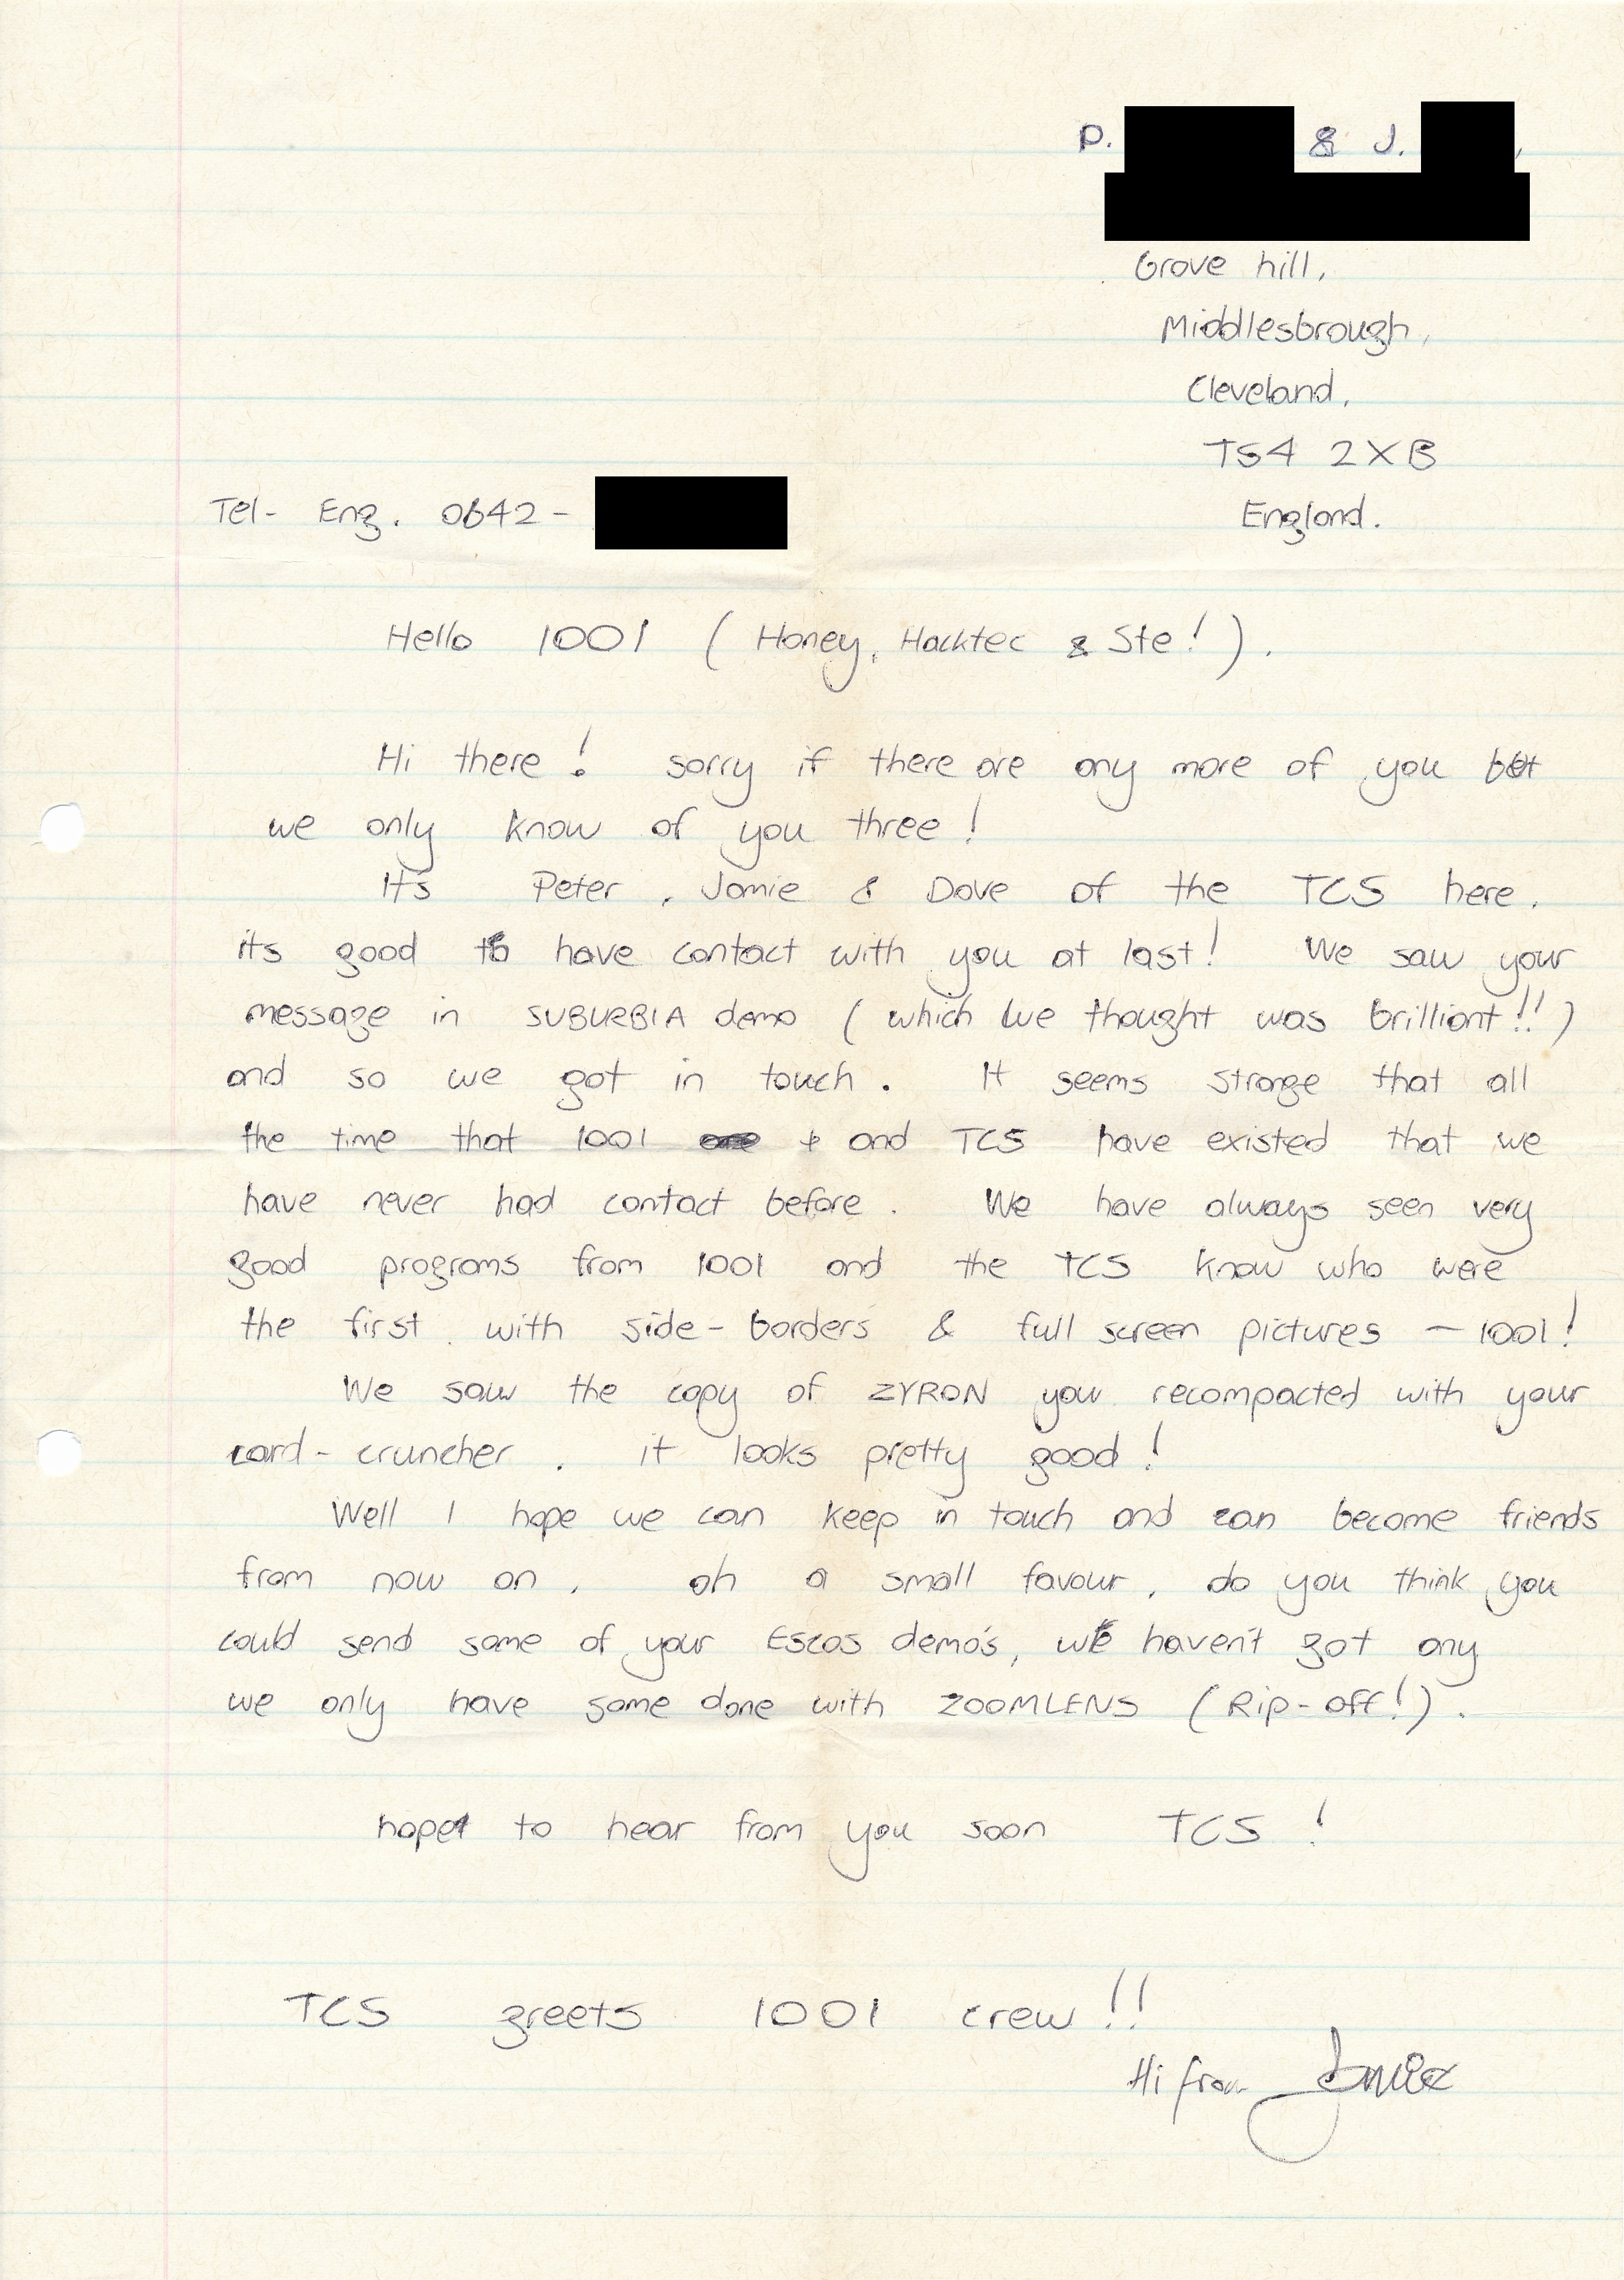 P. & J. ,
Grove hill,
Middlesbrough,
Cleveland,
TS4 2XB
Tel- Eng. 0642-
England.
Hello 1001 ( Honey, Hacktec & Ste! ).
Hi there! sorry if there are any more of you but
we only know of you three!
It's Peter, Jamie & Dave of the TCS here,
its good to have contact with you at last! We saw your
message in SUBURBIA demo ( which we thought was brilliant!! )
and so we got in touch. It seems strange that all
the time that 1001 + and TCS have existed that we
have never had contact before. We have always seen very
good programs from 1001 and the TCS know who were
the first with side-borders & full screen pictures - 1001!
We saw the copy of ZYRON you recompacted with your
card-cruncher. it looks pretty good!
Well I hope we can keep in touch and can become friends
from now on, oh a small favour, do you think you
could send some of your Escos demo's, we haven't got any
we only have some done with ZOOMLENS (Rip-off!).
hope to hear from you soon TCS!
TCS greets 1001 crew!!
Hi from Jamie